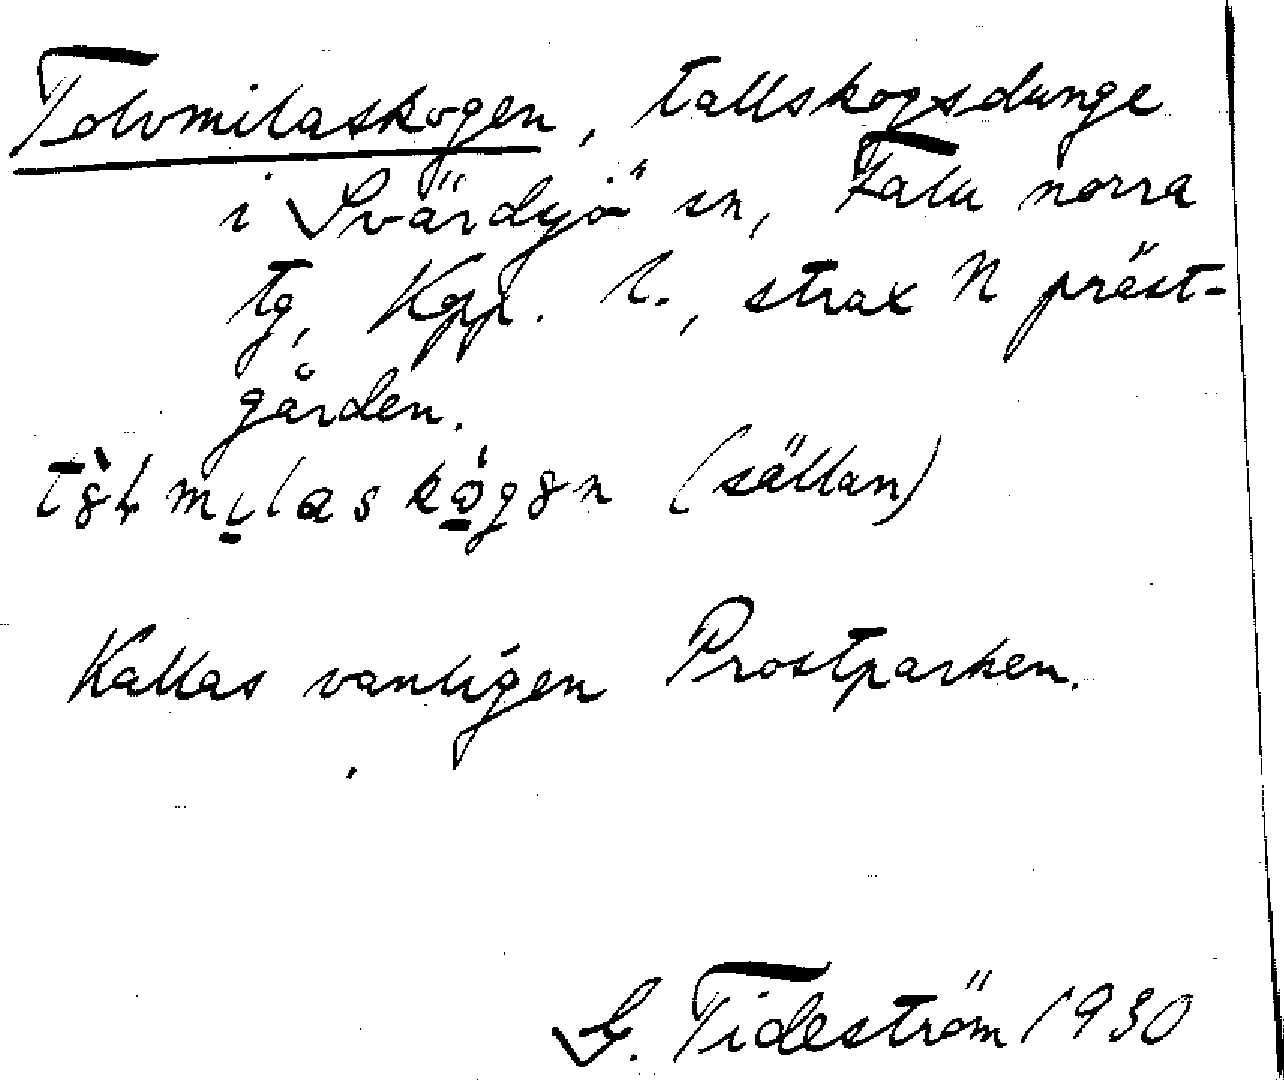 Tolvmilaskogen, tallskogsdunge
i Svärdsjö sn, Falu norra
tg, Kpp. l., strax N präst-
gården.
(sällan)
Kallas vanligen Prostparken.
G. Tideström 1930